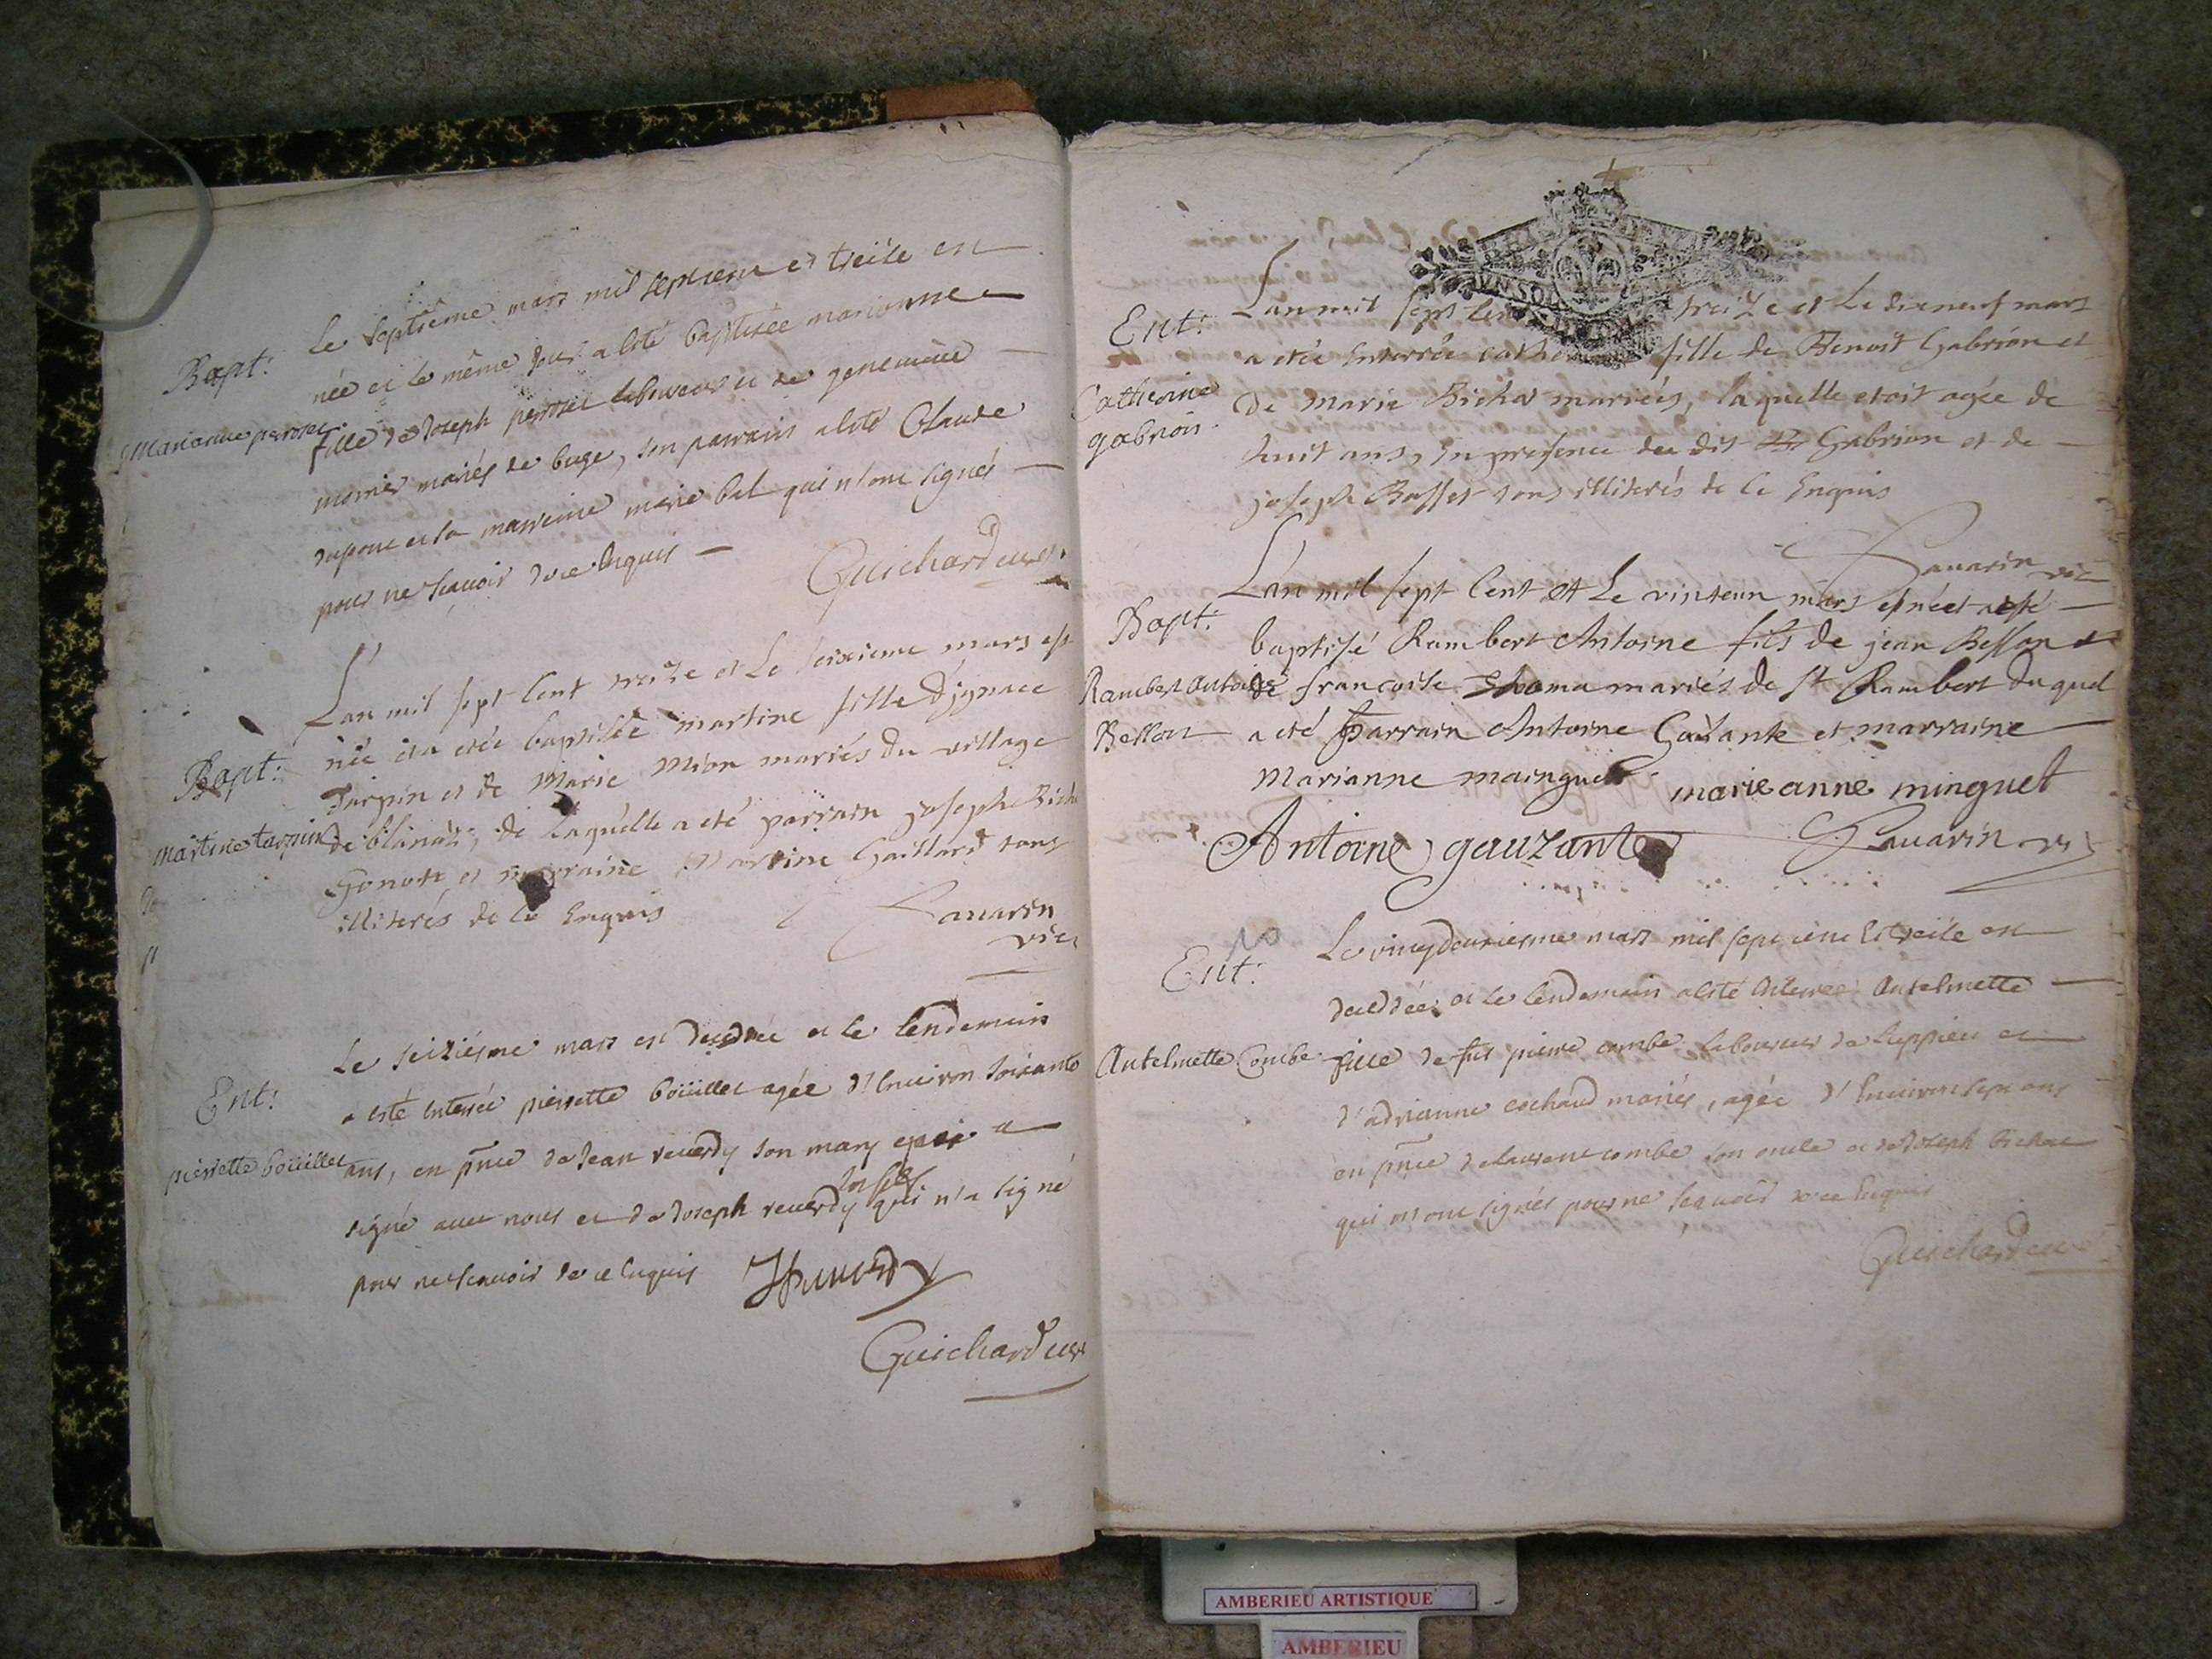 Bapt:
Marianne perrozet
Le septiême mars mil sept cent et treise est
née et le même jour a esté baptisée marianne
fille de Joseph perrozet laboureur et de genevieve
mornier mariés de buge, son parrain a esté Claude
dupont et la marreine marie bal qui n'ont signés
pour ne sçavoir de ce enquis
Guichard curé
Bapt:
martine turpin
L'an mil sept cent treize et Le seizieme mars est
née et a etée baptisée martine fille d'ignace
Turpin et de Marie Mion mariés du village
de blanaz, de laquelle a eté parrain joseph
Gonon et marraine Martine Gaillard tous
illiterés de ce Enquis
Savarin
vic
Ent:
pierrette boüillet
Le seiziésme mars est decedée et le lendemain
a esté enterrée pierrette boüillet agée d'environ soixante
ans, en pnce de Jean reverdy son mary qui a
signé avec nous et de Joseph reverdy son fils qui n'a signé
pour ne scavoir de ce enquis
JReverdy
Guichard curé
Ent:
Catherine
gabrion
L'an mil sept cent treize et Le dixneuf mars
a etée Enterrée cathe fille de Benoit Gabrion et
de Marie Bichat mariés, laquelle etoit agée de
huit ans, En presence du dit Gabrion et de
joseph Basset tous illiterés de ce Enquis
Savarin vic
Bapt:
Rambert Antoine
Besson
L'an mil sept Cent et Le vinteun mars est né et a esté
baptisé Rambert Antoine fils de jean Besson et
de francoise Thoma mariés de st Rambert duquel
a eté Parrain Antoine Gauzante et marraine
Marianne mainguet
marie anne minguet
Antoine gauzante
Savarin vic
Ent:
Antelmette Combe
Le vingt deuxiesme mars mil sept cent et treise est
decedée et le lendemain a esté enterrée Antelmette
fille de fut pierre combe laboureur de luppieu et
d'adrianne cochard mariés, agée d'environ sept ans
en pnce de laurent combe son oncle et de Joseph bichat
qui n'ont signés pour ne sçavoir de ce enquis
Guichard curé
AMBERIEU ARTISTIQUE
AMBERIEU